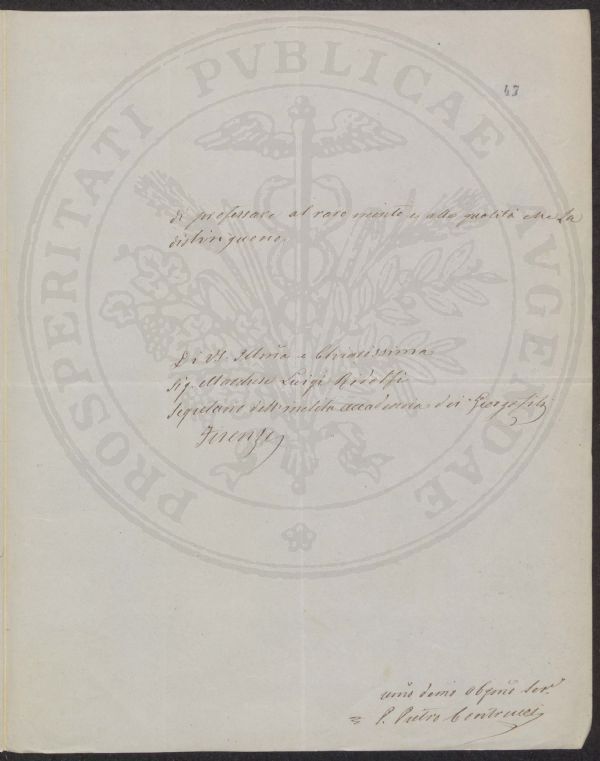 47
di professare al raro merito e alle qualità che la
distinguono.
Di V. S. Illma e Chiarissima
Sig. Marchese Luigi Ridolfi
Segretario dell'inclita accademia dei Georgofili
Firenze
umo devmo obbmo Ser.
P. Pietro Contrucci
PROSPERITATI PVBLICAE AVGENDAE